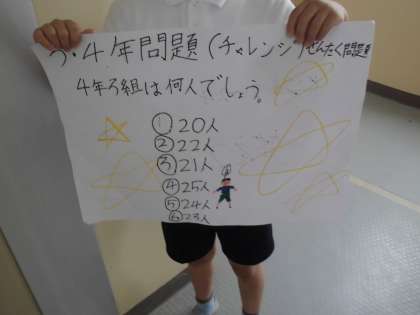 3・4年問題(チャレンジ)せんたく問題
4年3組は何人でしょう。
①20人
②22人
③21人
④25人
⑤24人
⑥23人